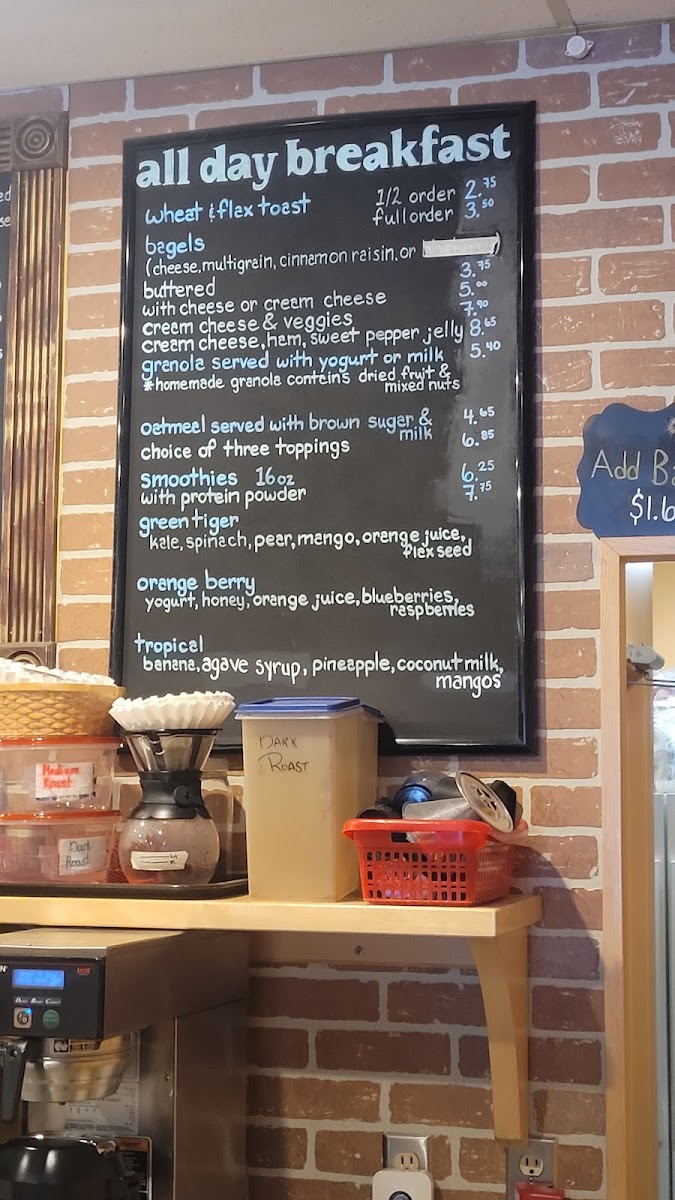 all day breakfast
wheat & flax toast 1/2 order 2.75
full order 3.50
bagels
(cheese, multigrain, cinnamon raisin, or
buttered 3.75
with cheese or cream cheese 5.00
cream cheese & veggies 7.90
cream cheese, ham, sweet pepper jelly 8.65
granola served with yogurt or milk 5.40
*homemade granola contains dried fruit &
mixed nuts
oatmeal served with brown sugar & 4.65
milk
choice of three toppings 6.85
smoothies 16oz 6.25
with protein powder 7.75
green tiger
kale, spinach, pear, mango, orange juice,
flex seed
orange berry
yogurt, honey, orange juice, blueberries,
raspberries
tropical
banana, agave syrup, pineapple, coconut milk,
mangos
Add Ba
$1.6
DARK
ROAST
Medium
Roast
Dark
Roast